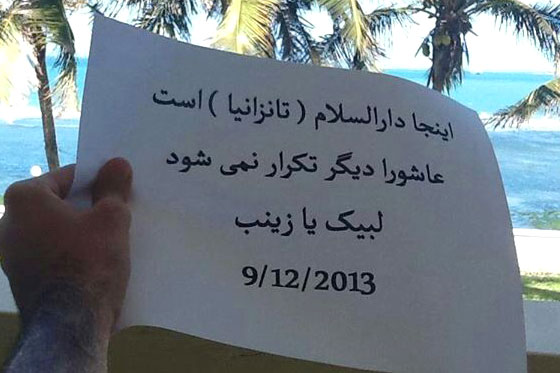 اینجا دارالسلام ( تانزانیا ) است
عاشورا دیگر تکرار نمی شود
لبیک یا زینب
9/12/2013